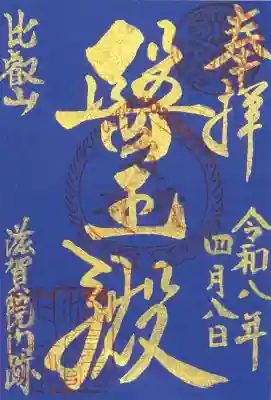 奉拝
令和八年
四月八日
醫王殿
比叡山
滋賀院門跡